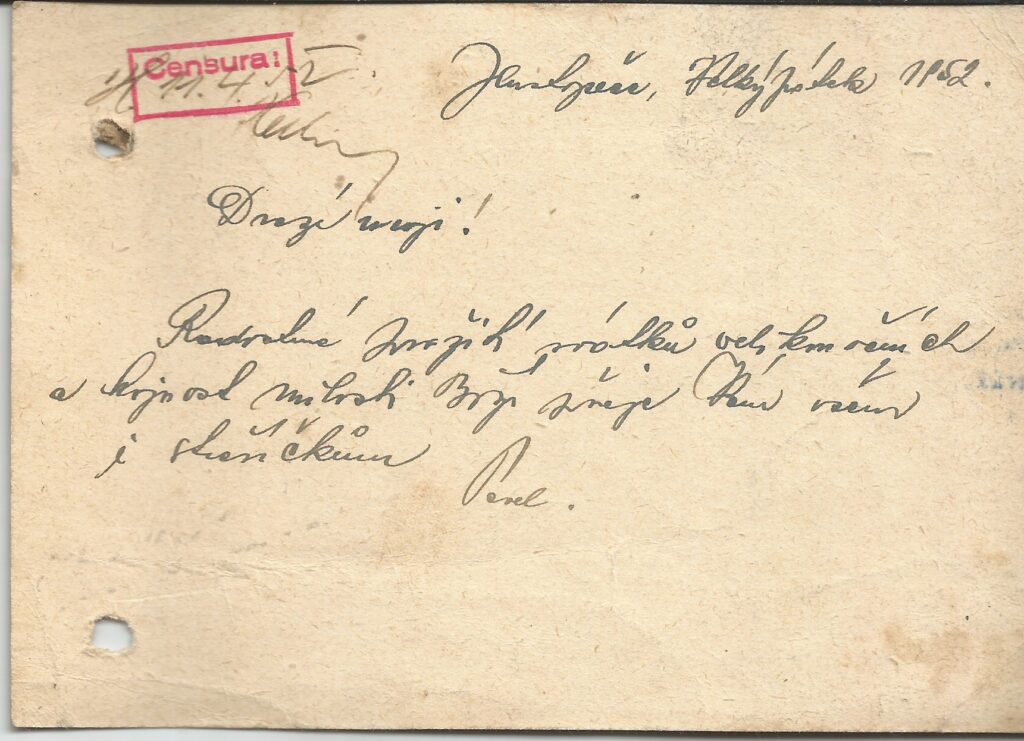 Censura:
11.4.52
Hlustopeče, Velký pátek 1952.
Drazí moji!
Radostné prožití svátků velikonočních
a hojnost milosti Boží přeje Vám všem
i stařičkům
Pavel.